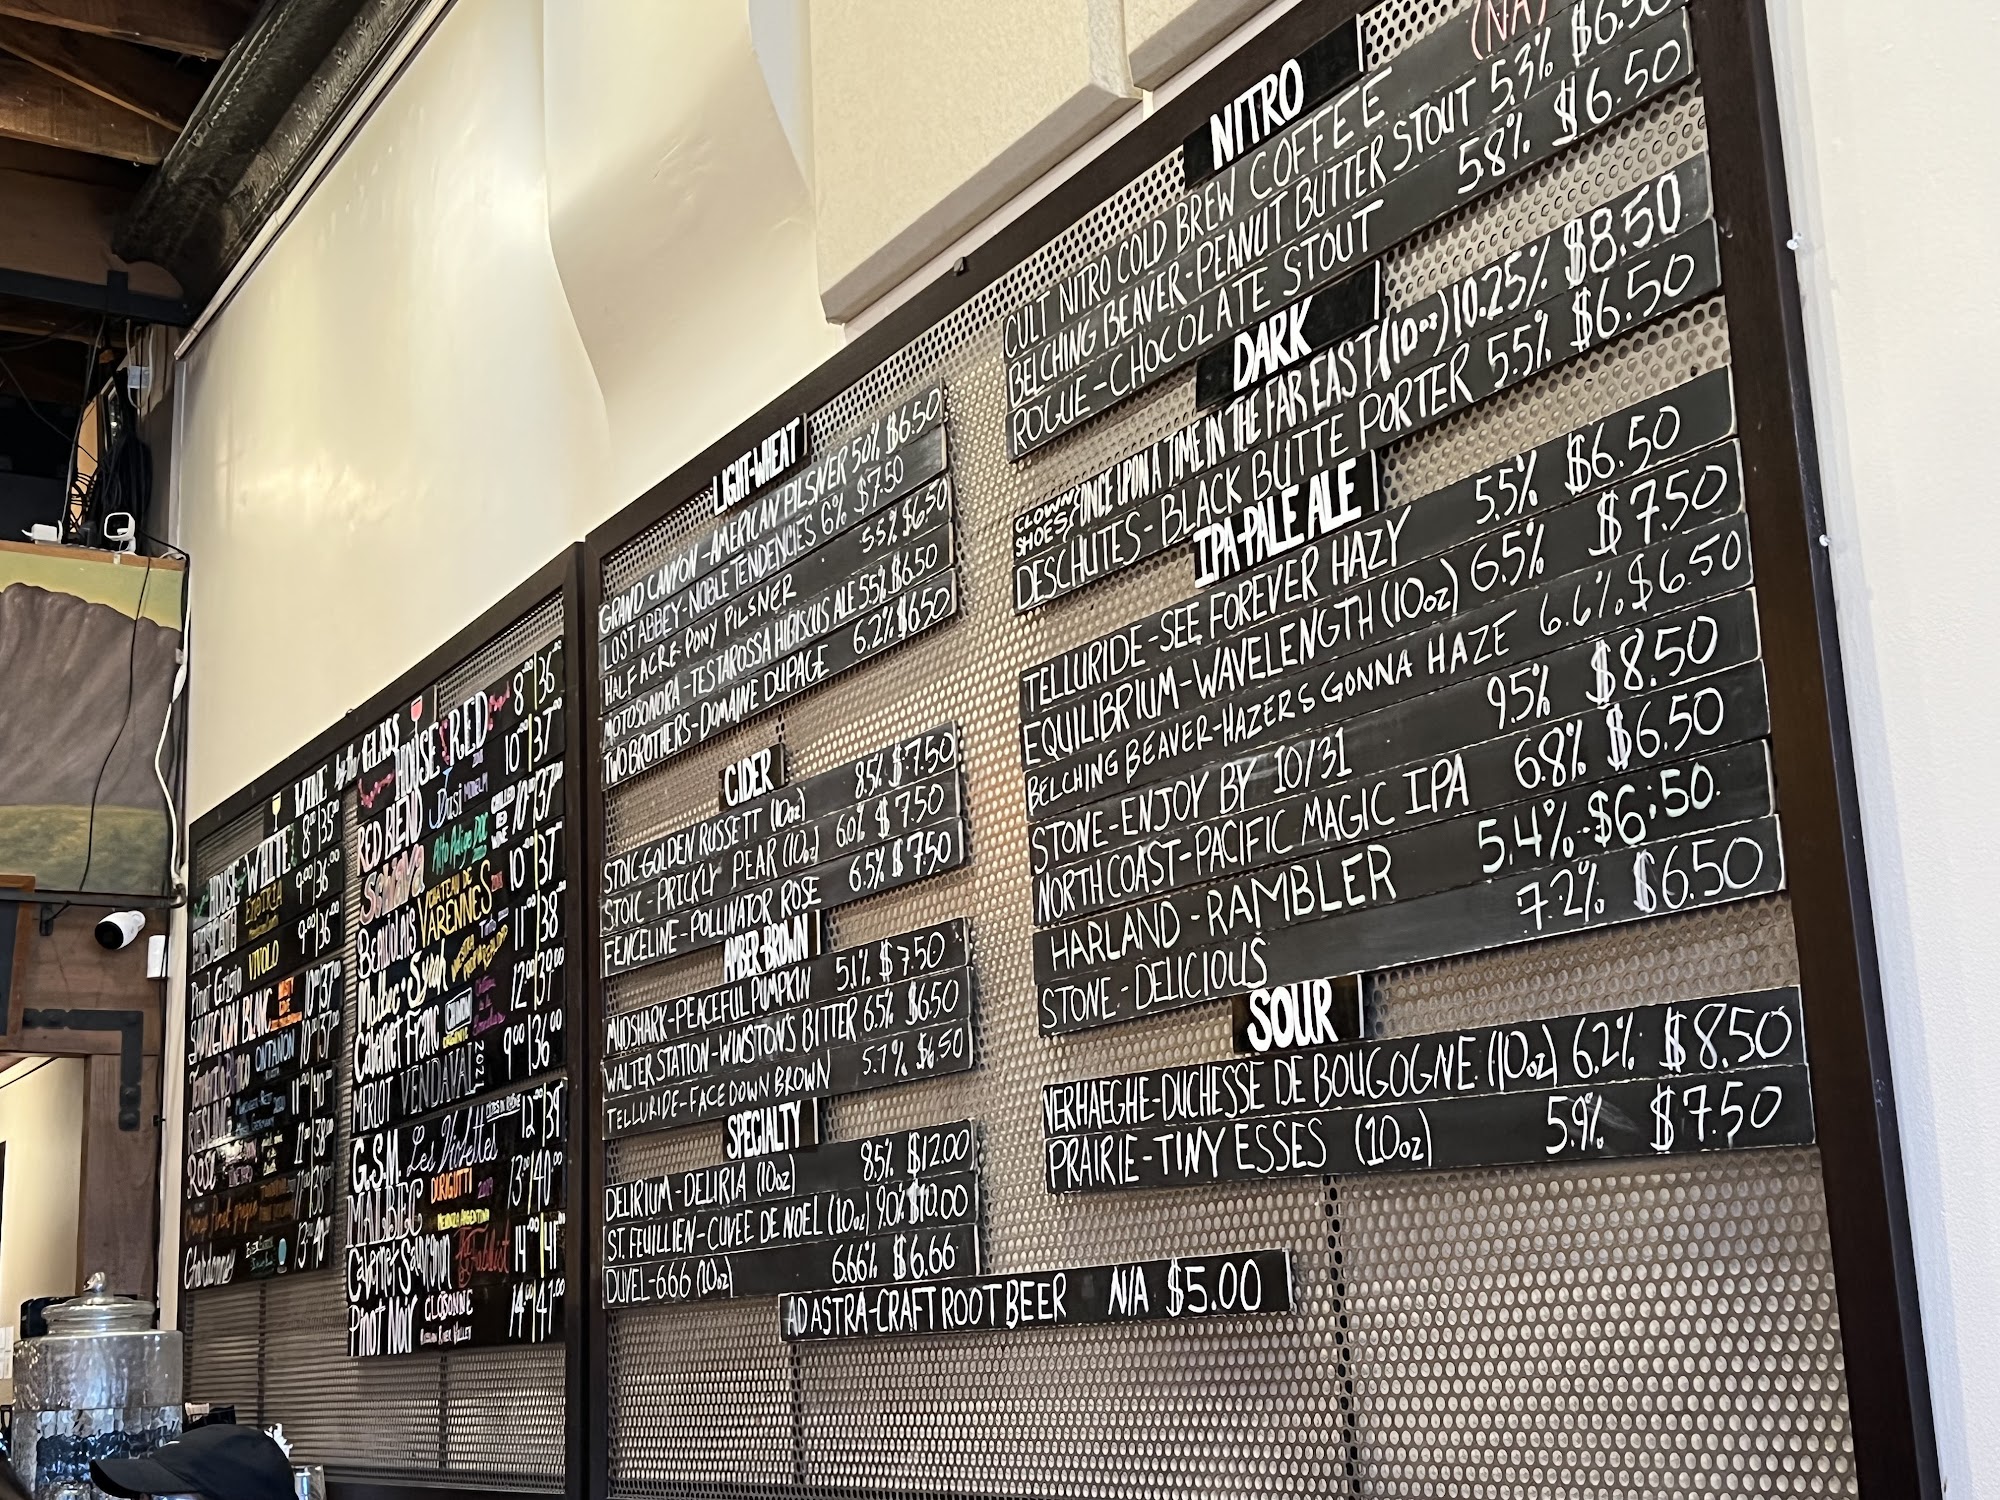 WINE by the GLASS
HOUSE WHITE 8⁰⁰|35⁰⁰
9⁰⁰|36⁰⁰
Pinot Grigio VIVOLO 9⁰⁰|36⁰⁰
SAUVIGNON BLANC 10⁰⁰|37⁰⁰
ONTAÑON 10⁰⁰|37⁰⁰
RIESLING 11⁰⁰|40⁰⁰
ROSÉ 11⁰⁰|38⁰⁰
Orange Pinot Grigio
Chardonnay 13⁰⁰|40⁰⁰
HOUSE RED 8⁰⁰|36⁰⁰
RED BLEND Dusi 10⁰⁰|37⁰⁰
Schiava Alto Adige DOC CHILLED RED WINE 10⁰⁰|37⁰⁰
BEAUJOLAIS CHATEAU DE VARENNES 10⁰⁰|37⁰⁰
Malbec-Syrah 11⁰⁰|38⁰⁰
Cabernet Franc CHINON ORGANIC 12⁰⁰|39⁰⁰
MERLOT VENDAVAL 2021 9⁰⁰|36⁰⁰
G.S.M. Les Violettes CÔTES DU RHÔNE 12⁰⁰|39⁰⁰
MALBEC DURIGUTTI 2019 MENDOZA ARGENTINA 13⁰⁰|40⁰⁰
Cabernet Sauvignon 14⁰⁰|41⁰⁰
Pinot Noir CLOSONNE RUSSIAN RIVER VALLEY 14⁰⁰|41⁰⁰
LIGHT-WHEAT
GRAND CANYON-AMERICAN PILSNER 5.0% $6.50
LOST ABBEY-NOBLE TENDENCIES 6% $7.50
HALF ACRE-PONY PILSNER 5.5% $6.50
MOTOSONORA-TESTAROSSA HIBISCUS ALE 5.5% $6.50
TWO BROTHERS-DOMAINE DUPAGE 6.2% $6.50
CIDER
STOIC-GOLDEN RUSSETT (10oz) 8.5% $7.50
STOIC-PRICKLY PEAR (10oz) 6.0% $7.50
FENCELINE-POLLINATOR ROSE 6.5% $7.50
AMBER-BROWN
MUDSHARK-PEACEFUL PUMPKIN 5.1% $7.50
WALTER STATION-WINSTON'S BITTER 6.5% $6.50
TELLURIDE-FACE DOWN BROWN 5.7% $6.50
SPECIALTY
DELIRIUM-DELIRIA (10oz) 8.5% $12.00
ST. FEUILLIEN-CUVEE DE NOEL (10oz) 9.0% $10.00
DUVEL-6.66 (10oz) 6.66% $6.66
AD ASTRA-CRAFT ROOT BEER N/A $5.00
NITRO
CULT NITRO COLD BREW COFFEE (NA) $6.50
BELCHING BEAVER-PEANUT BUTTER STOUT 5.3% $6.50
ROGUE-CHOCOLATE STOUT 5.8% $6.50
DARK
CLOWN SHOES-ONCE UPON A TIME IN THE FAR EAST (10oz) 10.25% $8.50
DESCHUTES-BLACK BUTTE PORTER 5.5% $6.50
IPA-PALE ALE
TELLURIDE-SEE FOREVER HAZY 5.5% $6.50
EQUILIBRIUM-WAVELENGTH (10oz) 6.5% $7.50
BELCHING BEAVER-HAZERS GONNA HAZE 6.6% $6.50
STONE-ENJOY BY 10/31 9.5% $8.50
NORTH COAST-PACIFIC MAGIC IPA 6.8% $6.50
HARLAND-RAMBLER 5.4% $6.50
STONE-DELICIOUS 7.2% $6.50
SOUR
VERHAEGHE-DUCHESSE DE BOUGOGNE (10oz) 6.2% $8.50
PRAIRIE-TINY ESSES (10oz) 5.9% $7.50